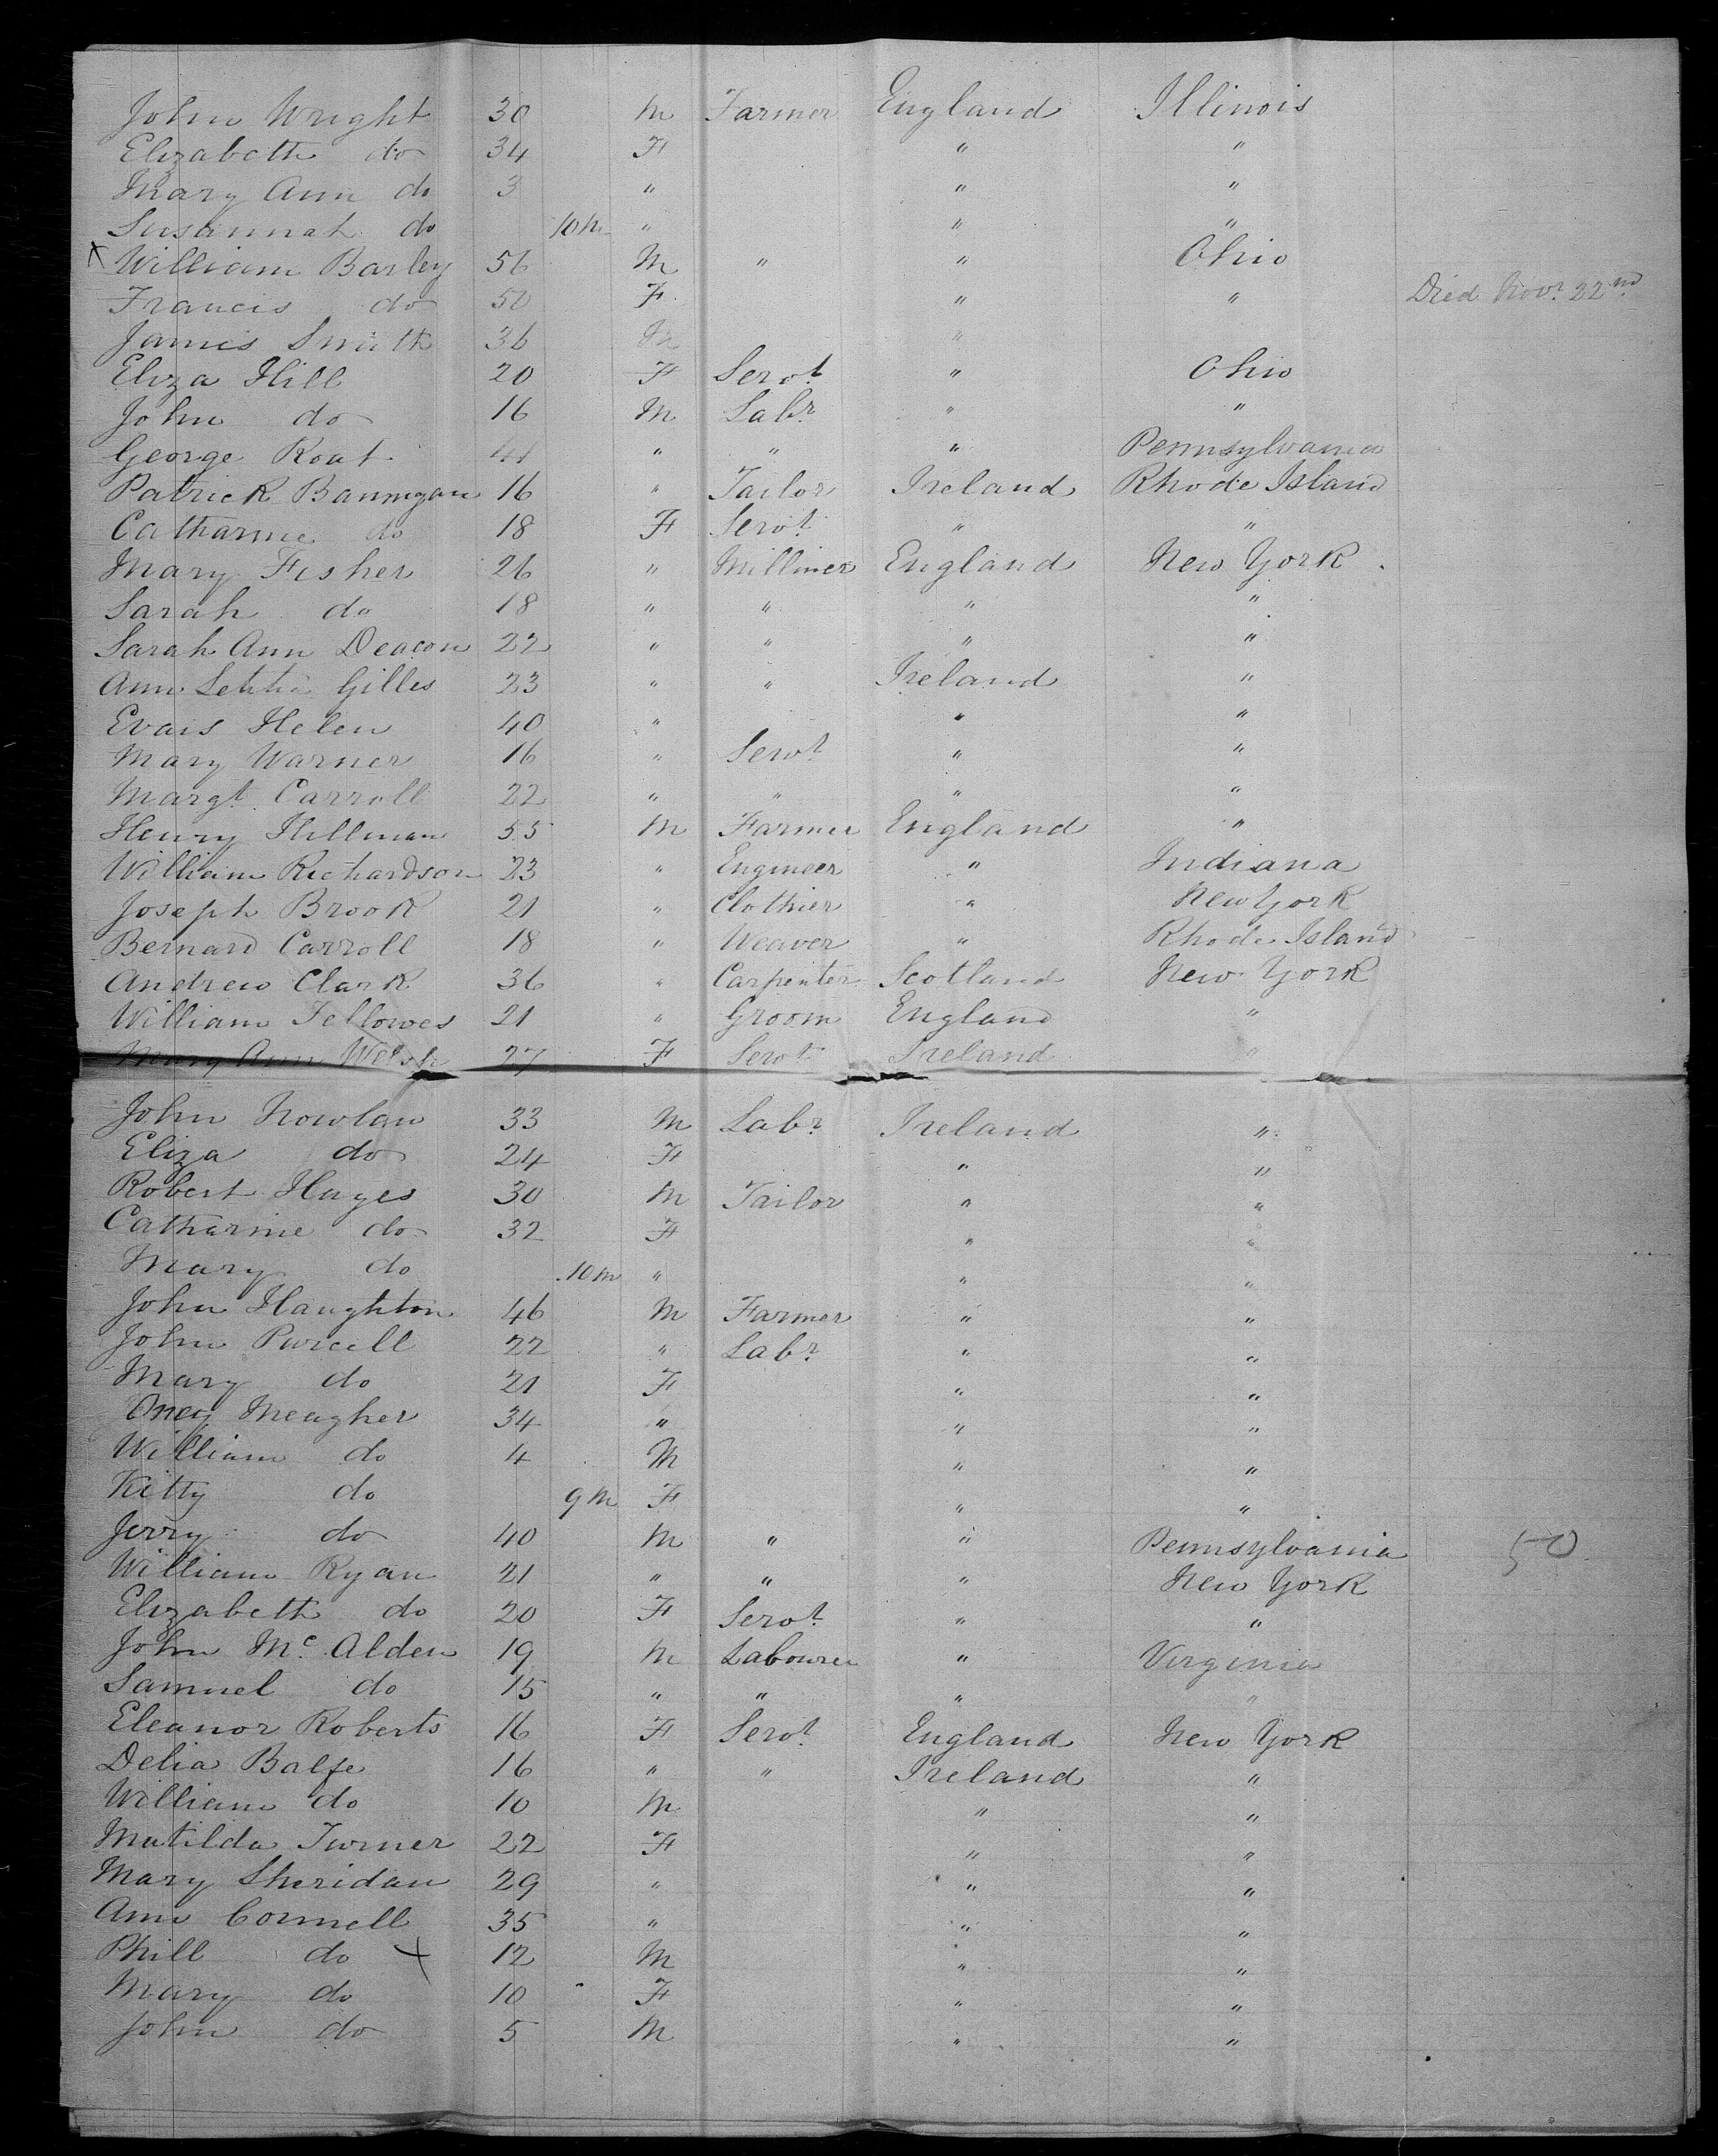 John Wright 30 M Farmer England Illinois
Elizabeth do 34 F " "
Mary Ann do 3 " " "
Susannah do 10 m " " "
x William Barley 56 M " " Ohio
Francis do 50 F " " Died Novr 22nd
James Smith 36 M "
Eliza Hill 20 F Servt " Ohio
John do 16 M Labr " "
George Roat 41 " " " Pennsylvania
Patrick Bannigan 16 " Tailor Ireland Rhode Island
Catharine do 18 F Servt " "
Mary Fisher 26 " Milliner England New York
Sarah do 18 " " " "
Sarah Ann Deacon 22 " " " "
Ann Letitia Gilles 23 " " Ireland "
Evais Helen 40 " " "
Mary Warner 16 " Servt " "
Margt Carroll 22 " " " "
Henry Hillman 55 M Farmer England "
William Richardson 23 " Engineer " Indiana
Joseph Brook 21 " Clothier " New York
Bernard Carroll 18 " Weaver " Rhode Island
Andrew Clark 36 " Carpenter Scotland New York
William Fellowes 21 " Groom England "
Mary Ann Welsh 27 F Servt Ireland "
John Nowlan 33 M Labr Ireland "
Eliza do 24 F " "
Robert Hayes 30 M Tailor " "
Catharine do 32 F " "
Mary do 10 m " " "
John Haughton 46 M Farmer " "
John Purcell 22 " Labr " "
Mary do 21 F " "
Oney Meagher 34 " " "
William do 4 M " "
Kitty do 9 m F " "
Jerry do 40 M " " Pennsylvania 50
William Ryan 21 " " " New York
Elizabeth do 20 F Servt " "
John Mc Alden 19 M Labourer " Virginia
Samuel do 15 " " " "
Eleanor Roberts 16 F Servt England New York
Delia Balfe 16 " " Ireland "
William do 10 M " "
Matilda Turner 22 F " "
Mary Sheridan 29 " " "
Ann Connell 35 " " "
Phill do x 12 M " "
Mary do 10 F " "
John do 5 M " "